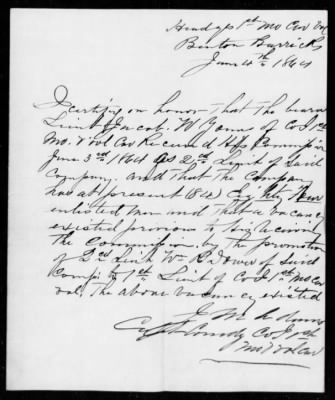 Headqrs 1st Mo Cav Vol
Benton Barracks
June 4th 1864
I certify on honor that the bearer
Lieut Jacob W of Co I 1st
Mo. Vol Cav Received His Commission
June 3rd 1864 as 2nd Lieut of Said
Company. and that the Company
has at present (84) Eighty Four
enlisted men and that a vacancy
existed previous to his
the Commission. by the promotion
of 2nd Lieut Wm of Said
Comp. to 1st Lieut of Co I 1st Mo Cav
Vol. The above vacancy existed
J. M.
Capt Comdg Co I 1st
Mo Vol Cav